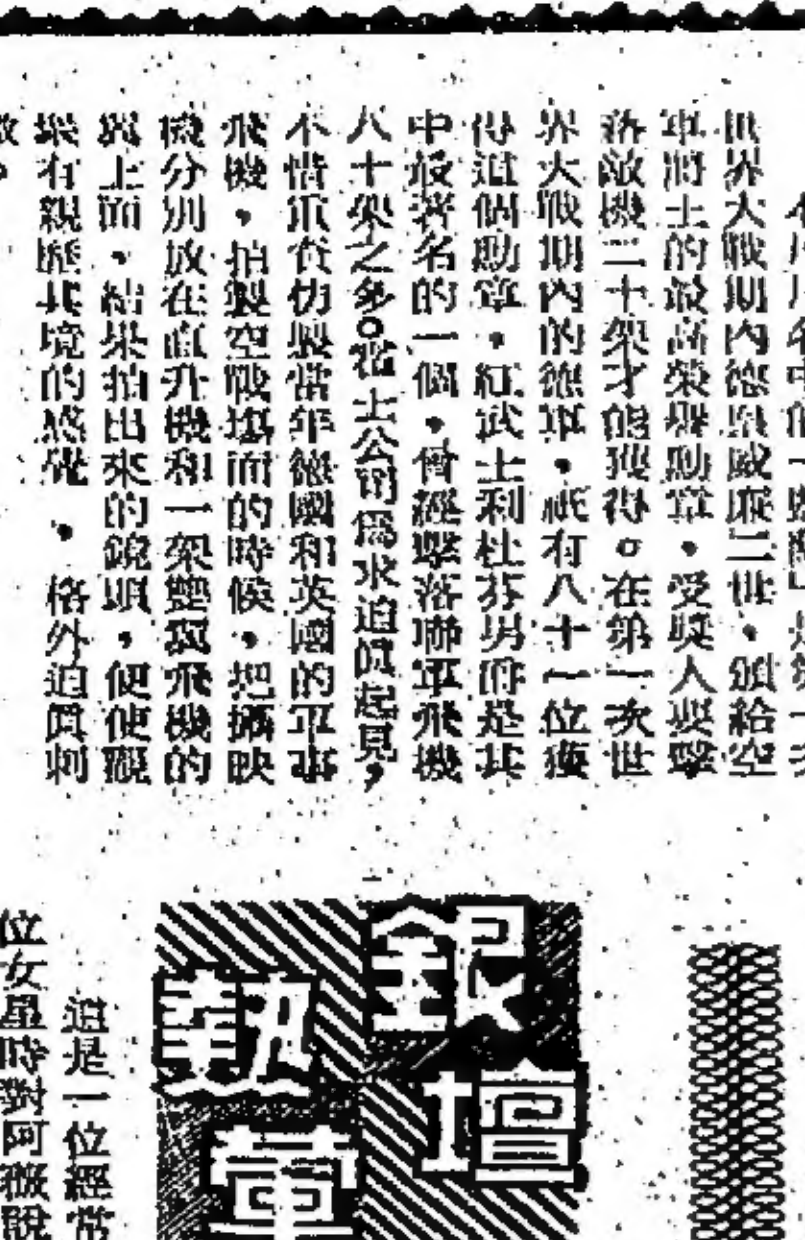 世界大戰期內德皇威廉二世，頒給空
軍將士的最高榮譽勳章，受獎人要擊
落敵機二十架才能獲得。在第一次世
界大戰期內的德軍，祇有八十一位獲
得這個勳章，紅武士利杜芬男爵是其
中最著名的一個，曾經擊落聯軍飛機
八十架之多。霍士公司爲求迫眞起見，
不惜重資仿製當年德國和英國的軍事
飛機，拍製空戰塲面的時候，把攝映
機分別放在直升機和一架雙翼飛機的
翼上面，結果拍出來的鏡頭，便使觀
衆有親歷其境的感覺，格外迫眞刺
激。
銀壇
這是一位經常
位女星時對阿薇說